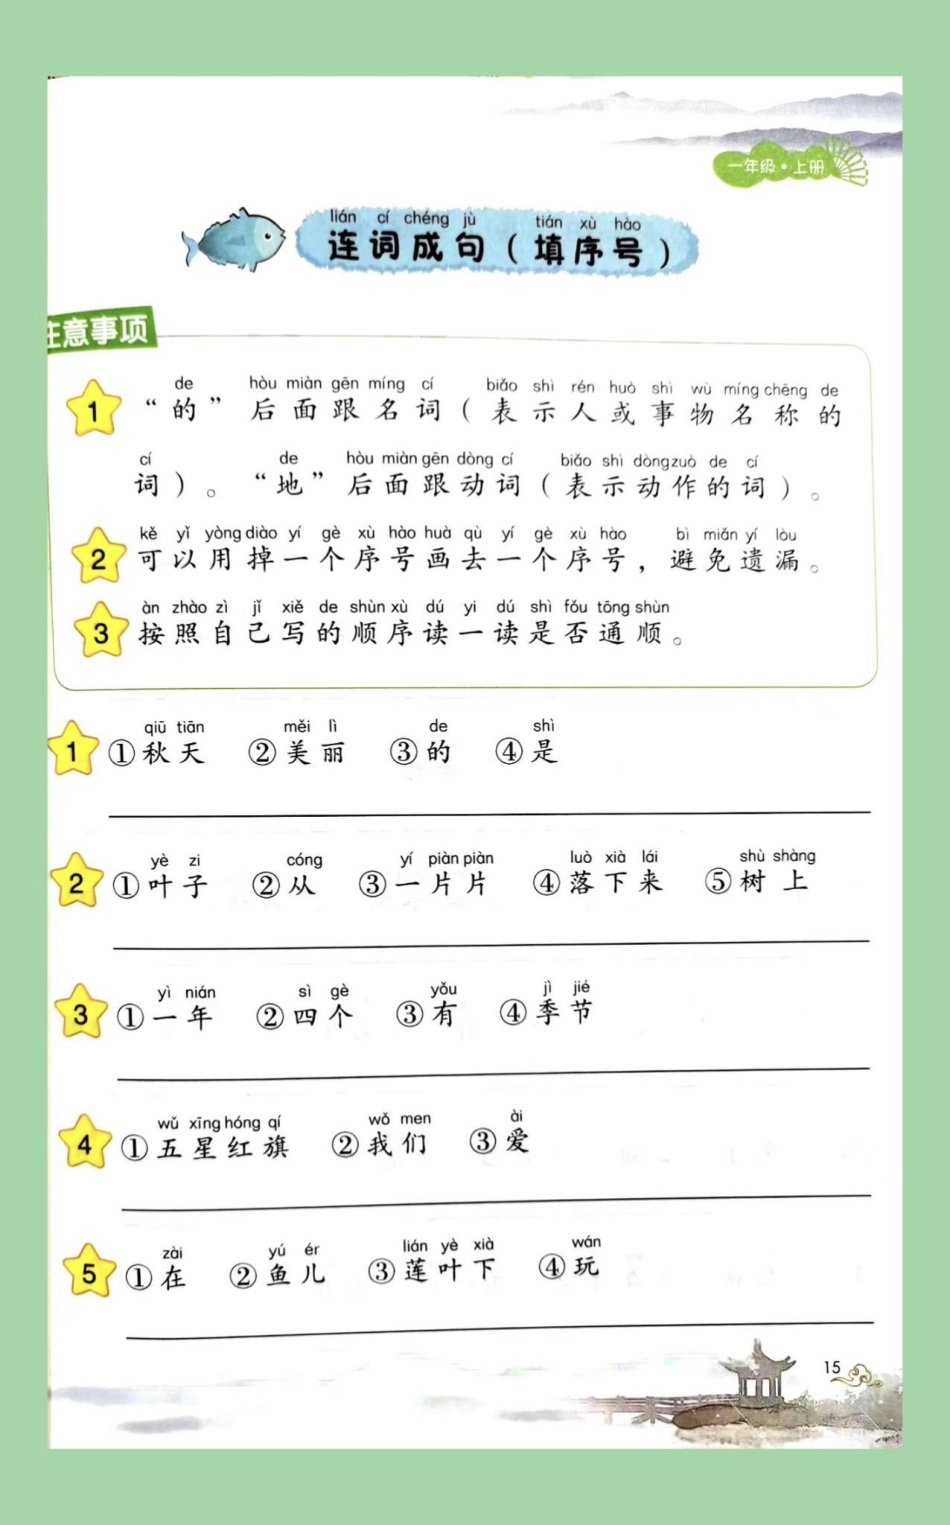 一年级·上册
lián cí chéng jù tián xù hào
连词成句(填序号)
注意事项
de hòu miàn gēn míng cí biǎo shì rén huò shì wù míng chēng de
1 “的”后面跟名词(表示人或事物名称的
cí de hòu miàn gēn dòng cí biǎo shì dòng zuò de cí
词)。“地”后面跟动词(表示动作的词)。
kě yǐ yòng diào yí gè xù hào huà qù yí gè xù hào bì miǎn yí lòu
2 可以用掉一个序号画去一个序号,避免遗漏。
àn zhào zì jǐ xiě de shùn xù dú yi dú shì fǒu tōng shùn
3 按照自己写的顺序读一读是否通顺。
qiū tiān měi lì de shì
1 ①秋天 ②美丽 ③的 ④是
yè zi cóng yí piàn piàn luò xià lái shù shàng
2 ①叶子 ②从 ③一片片 ④落下来 ⑤树上
yì nián sì gè yǒu jì jié
3 ①一年 ②四个 ③有 ④季节
wǔ xīng hóng qí wǒ men ài
4 ①五星红旗 ②我们 ③爱
zài yú ér lián yè xià wán
5 ①在 ②鱼儿 ③莲叶下 ④玩
15